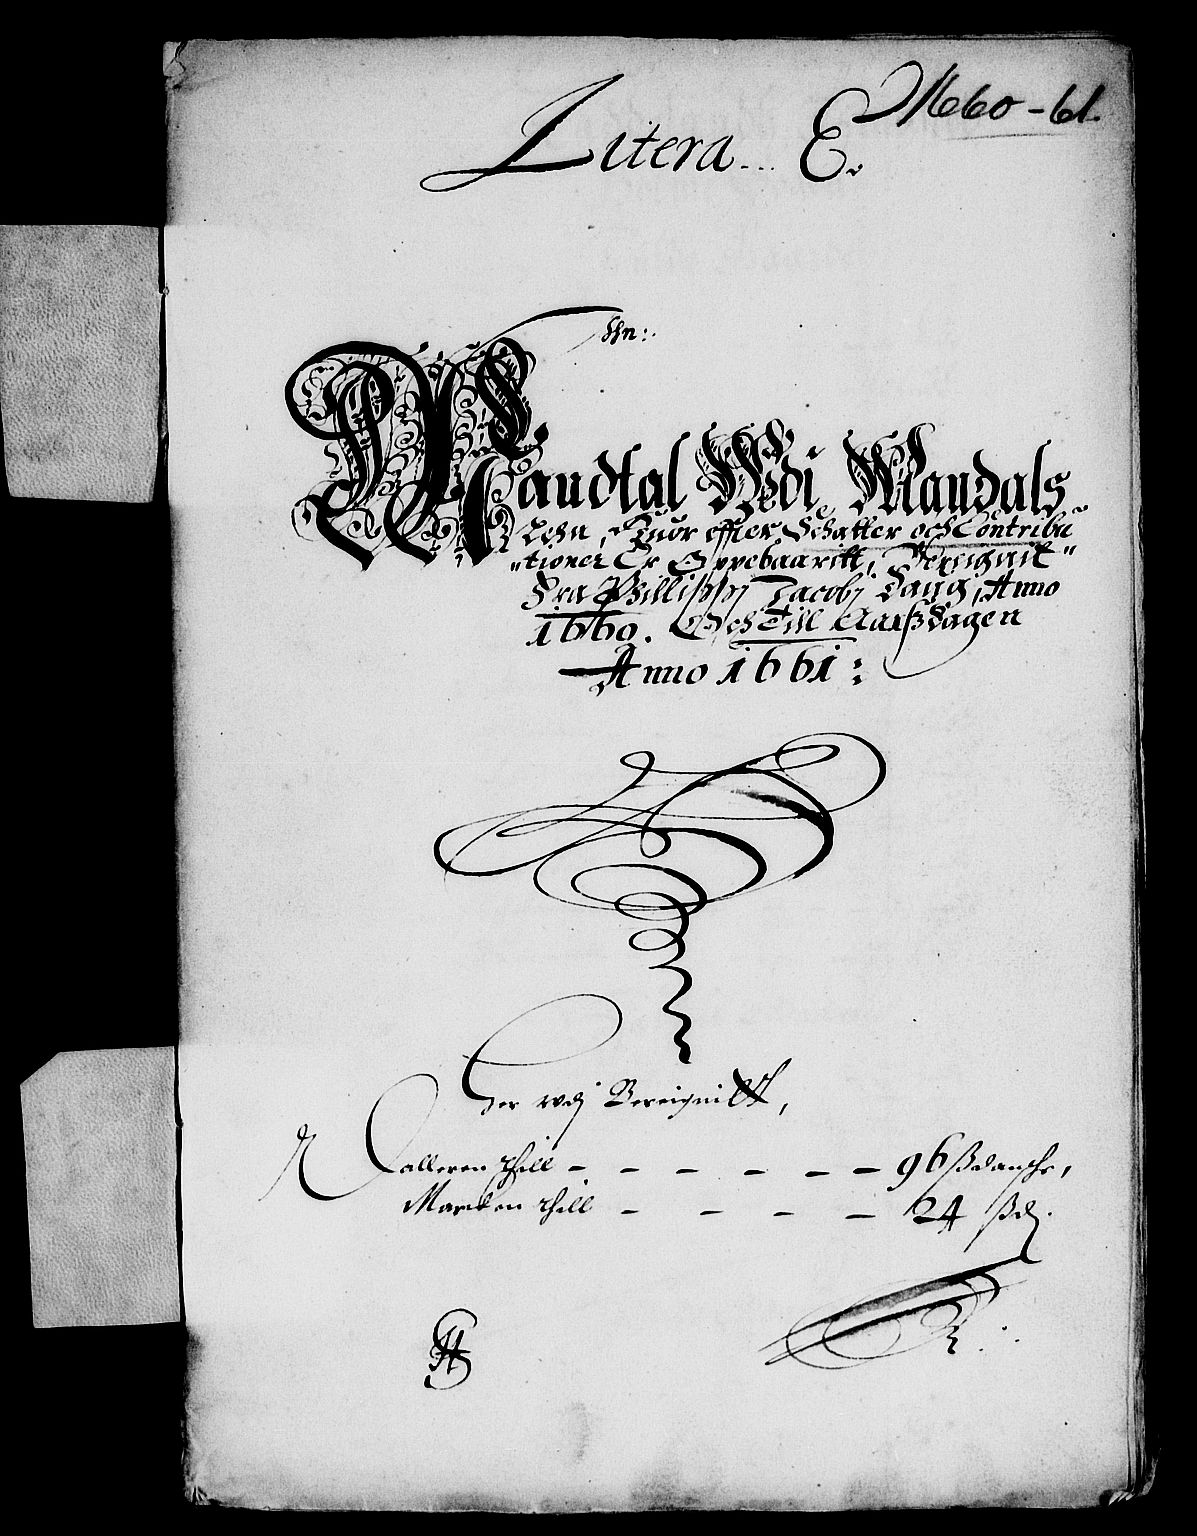 1660-61.
Litera... E.
Mandtal Wdi Mandals
Lehn, Huor effter Schatter och Contribu
"tioner Er Oppebaaritt, Bereignit"
Fra Phillippj Jacobj Dagh, Anno
1660. Och Till Aarßdagen
Anno 1661:
Der wdj Bereignitt,
Dalleren thill - - - - - - 96 ß danske,
Marcken thill - - - - 24 ß d.